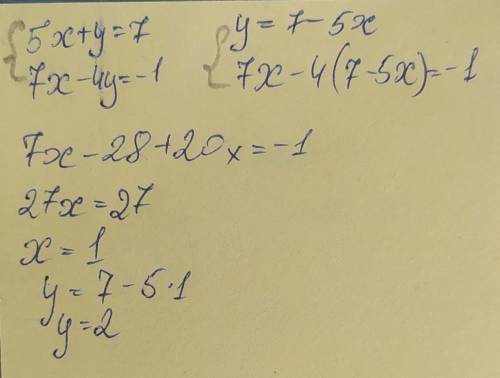 5x+y=7
7x-4y=-1
y=7-5x
7x-4(7-5x)=-1
7x-28+20x=-1
27x=27
x=1
y=7-5·1
y=2